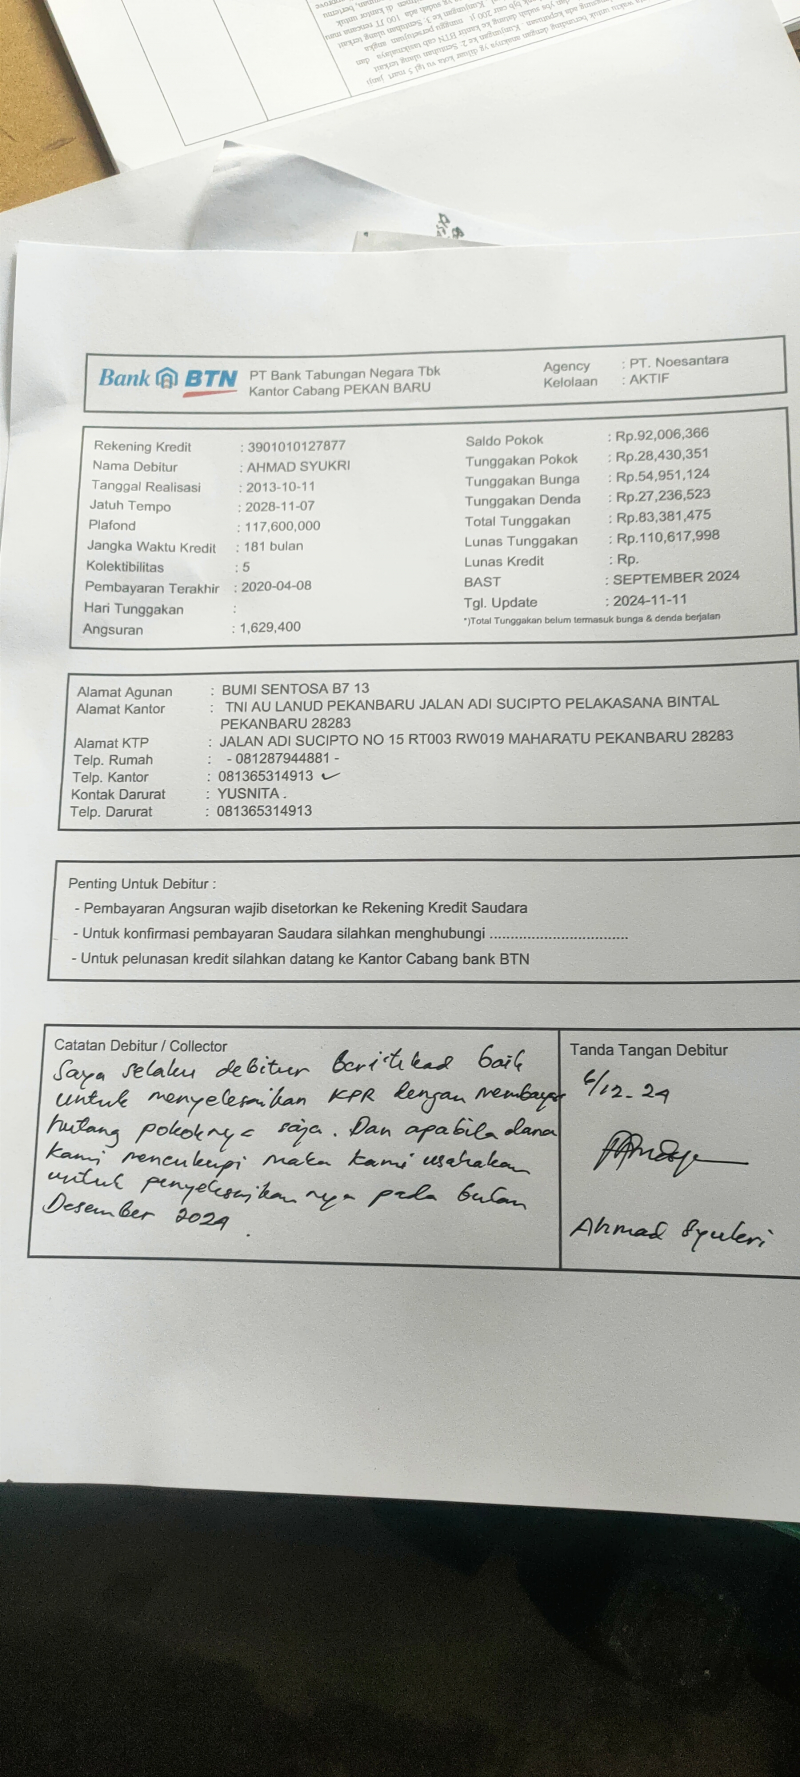 Bank BTN PT Bank Tabungan Negara Tbk
Kantor Cabang PEKAN BARU
Agency : PT. Noesantara
Kelolaan : AKTIF
Rekening Kredit : 3901010127877
Nama Debitur : AHMAD SYUKRI
Tanggal Realisasi : 2013-10-11
Jatuh Tempo : 2028-11-07
Plafond : 117,600,000
Jangka Waktu Kredit : 181 bulan
Kolektibilitas : 5
Pembayaran Terakhir : 2020-04-08
Hari Tunggakan :
Angsuran : 1,629,400
Saldo Pokok : Rp.92,006,366
Tunggakan Pokok : Rp.28,430,351
Tunggakan Bunga : Rp.54,951,124
Tunggakan Denda : Rp.27,236,523
Total Tunggakan : Rp.83,381,475
Lunas Tunggakan : Rp.110,617,998
Lunas Kredit : Rp.
BAST : SEPTEMBER 2024
Tgl. Update : 2024-11-11
*)Total Tunggakan belum termasuk bunga & denda berjalan
Alamat Agunan : BUMI SENTOSA B7 13
Alamat Kantor : TNI AU LANUD PEKANBARU JALAN ADI SUCIPTO PELAKASANA BINTAL
PEKANBARU 28283
Alamat KTP : JALAN ADI SUCIPTO NO 15 RT003 RW019 MAHARATU PEKANBARU 28283
Telp. Rumah : - 081287944881 -
Telp. Kantor : 081365314913 ✓
Kontak Darurat : YUSNITA .
Telp. Darurat : 081365314913
Penting Untuk Debitur :
- Pembayaran Angsuran wajib disetorkan ke Rekening Kredit Saudara
- Untuk konfirmasi pembayaran Saudara silahkan menghubungi .................................
- Untuk pelunasan kredit silahkan datang ke Kantor Cabang bank BTN
Catatan Debitur / Collector
Saya selaku debitur beritikad baik
untuk menyelesaikan KPR dengan membayar
hutang pokoknya saja. Dan apabila dana
kami mencukupi maka kami usahakan
untuk penyelesaikannya pada bulan
Desember 2024.
Tanda Tangan Debitur
6/12-24
Ahmad Syukri